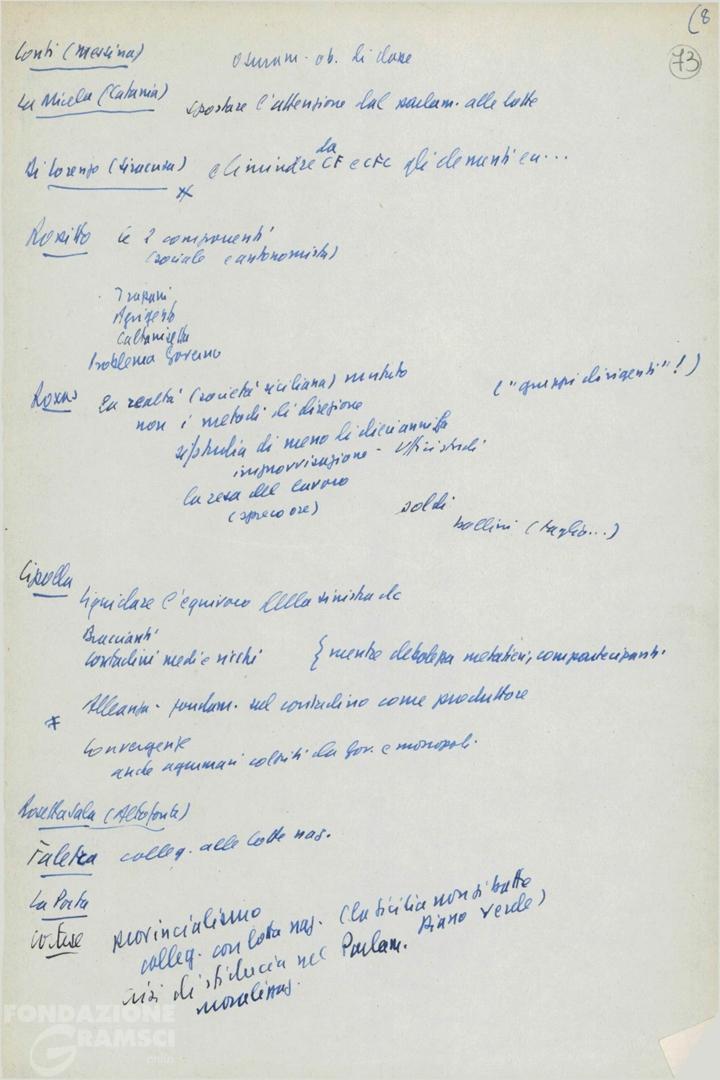 (8
73
Conti (Messina) osserv. ob. di classe
La Micela (Catania) spostare l'attenzione dal parlam. alle lotte
Di Lorenzo (Siracusa) eliminare da CF e CFC gli elementi
*
Rossitto le 2 componenti
(sociale e autonomista)
Trapani
Agrigento
Caltanisetta
Problema Governo
In realtà (società siciliana) mutato ("gruppi dirigenti"!)
non i metodi di direzione
si studia di meno di dieci anni fa
improvvisazione - Uffici studi
la resa del lavoro
(spreco ore) soldi
bollini (taglio...)
Cipolla
Liquidare l'equivoco della sinistra dc
Braccianti
Contadini medi e ricchi { mentre debolezza metatieri, compartecipanti.
* Alleanza - fondam. sul contadino come produttore
Convergenze
anche agrumari colpiti da Gov. e monopoli.
Rosetta Sala (Altofonte)
colleg. alle lotte naz.
La Porta
Cortese provincialismo
colleg. con lotta naz. (la Sicilia non si batte
Piano verde)
crisi di sfiducia nel Parlam.
FONDAZIONE
GRAMSCI
onlus